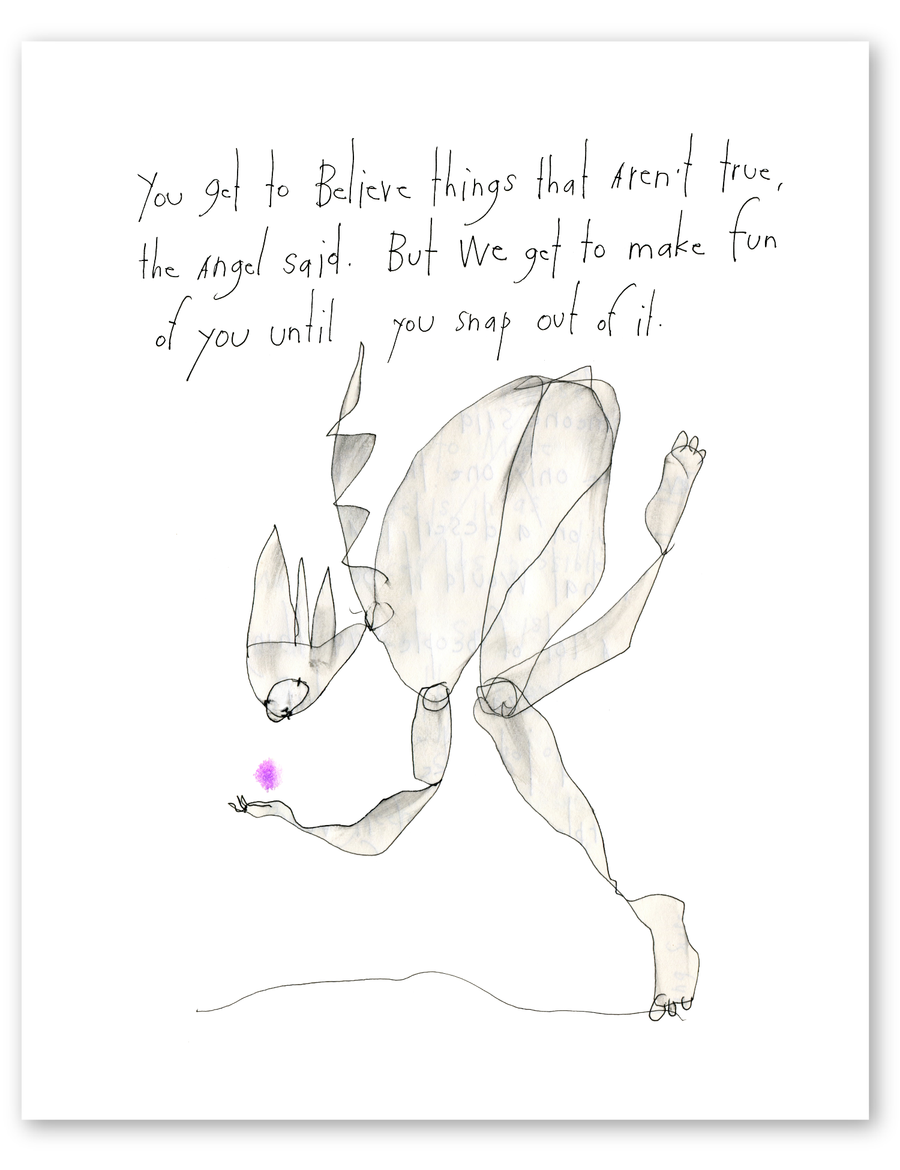 You get to Believe things that Aren't true,
the Angel said. But We get to make fun
of you until you snap out of it.